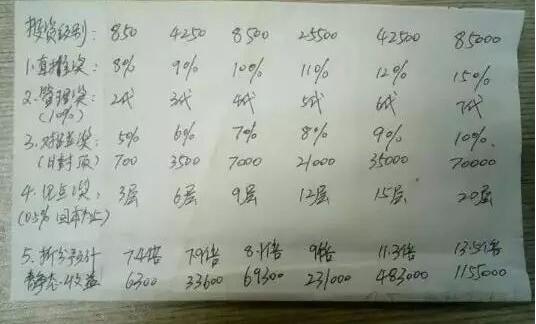 投资级别: 850 4250 8500 25500 42500 85000
1.直推奖: 8% 9% 10% 11% 12% 15%
2.管理奖: 2代 3代 4代 5代 6代 7代
(10%)
3.对碰奖: 5% 6% 7% 8% 9% 10%
(日封顶) 700 3500 7000 21000 35000 70000
4.见点奖: 3层 6层 9层 12层 15层 20层
(0.5% 回本止)
5.拆分预计 7.4倍 7.9倍 8.1倍 9倍 11.3倍 13.5倍
静态收益 6300 33600 69300 231000 483000 1155000